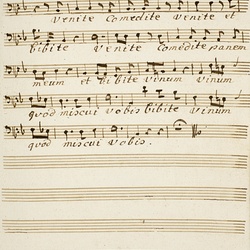 Venite Comedite Venite et
bibite Venite Comedite panem
meum et bibite vinum vinum
quod miscui vobis bibite Vinum
quod miscui vobis.